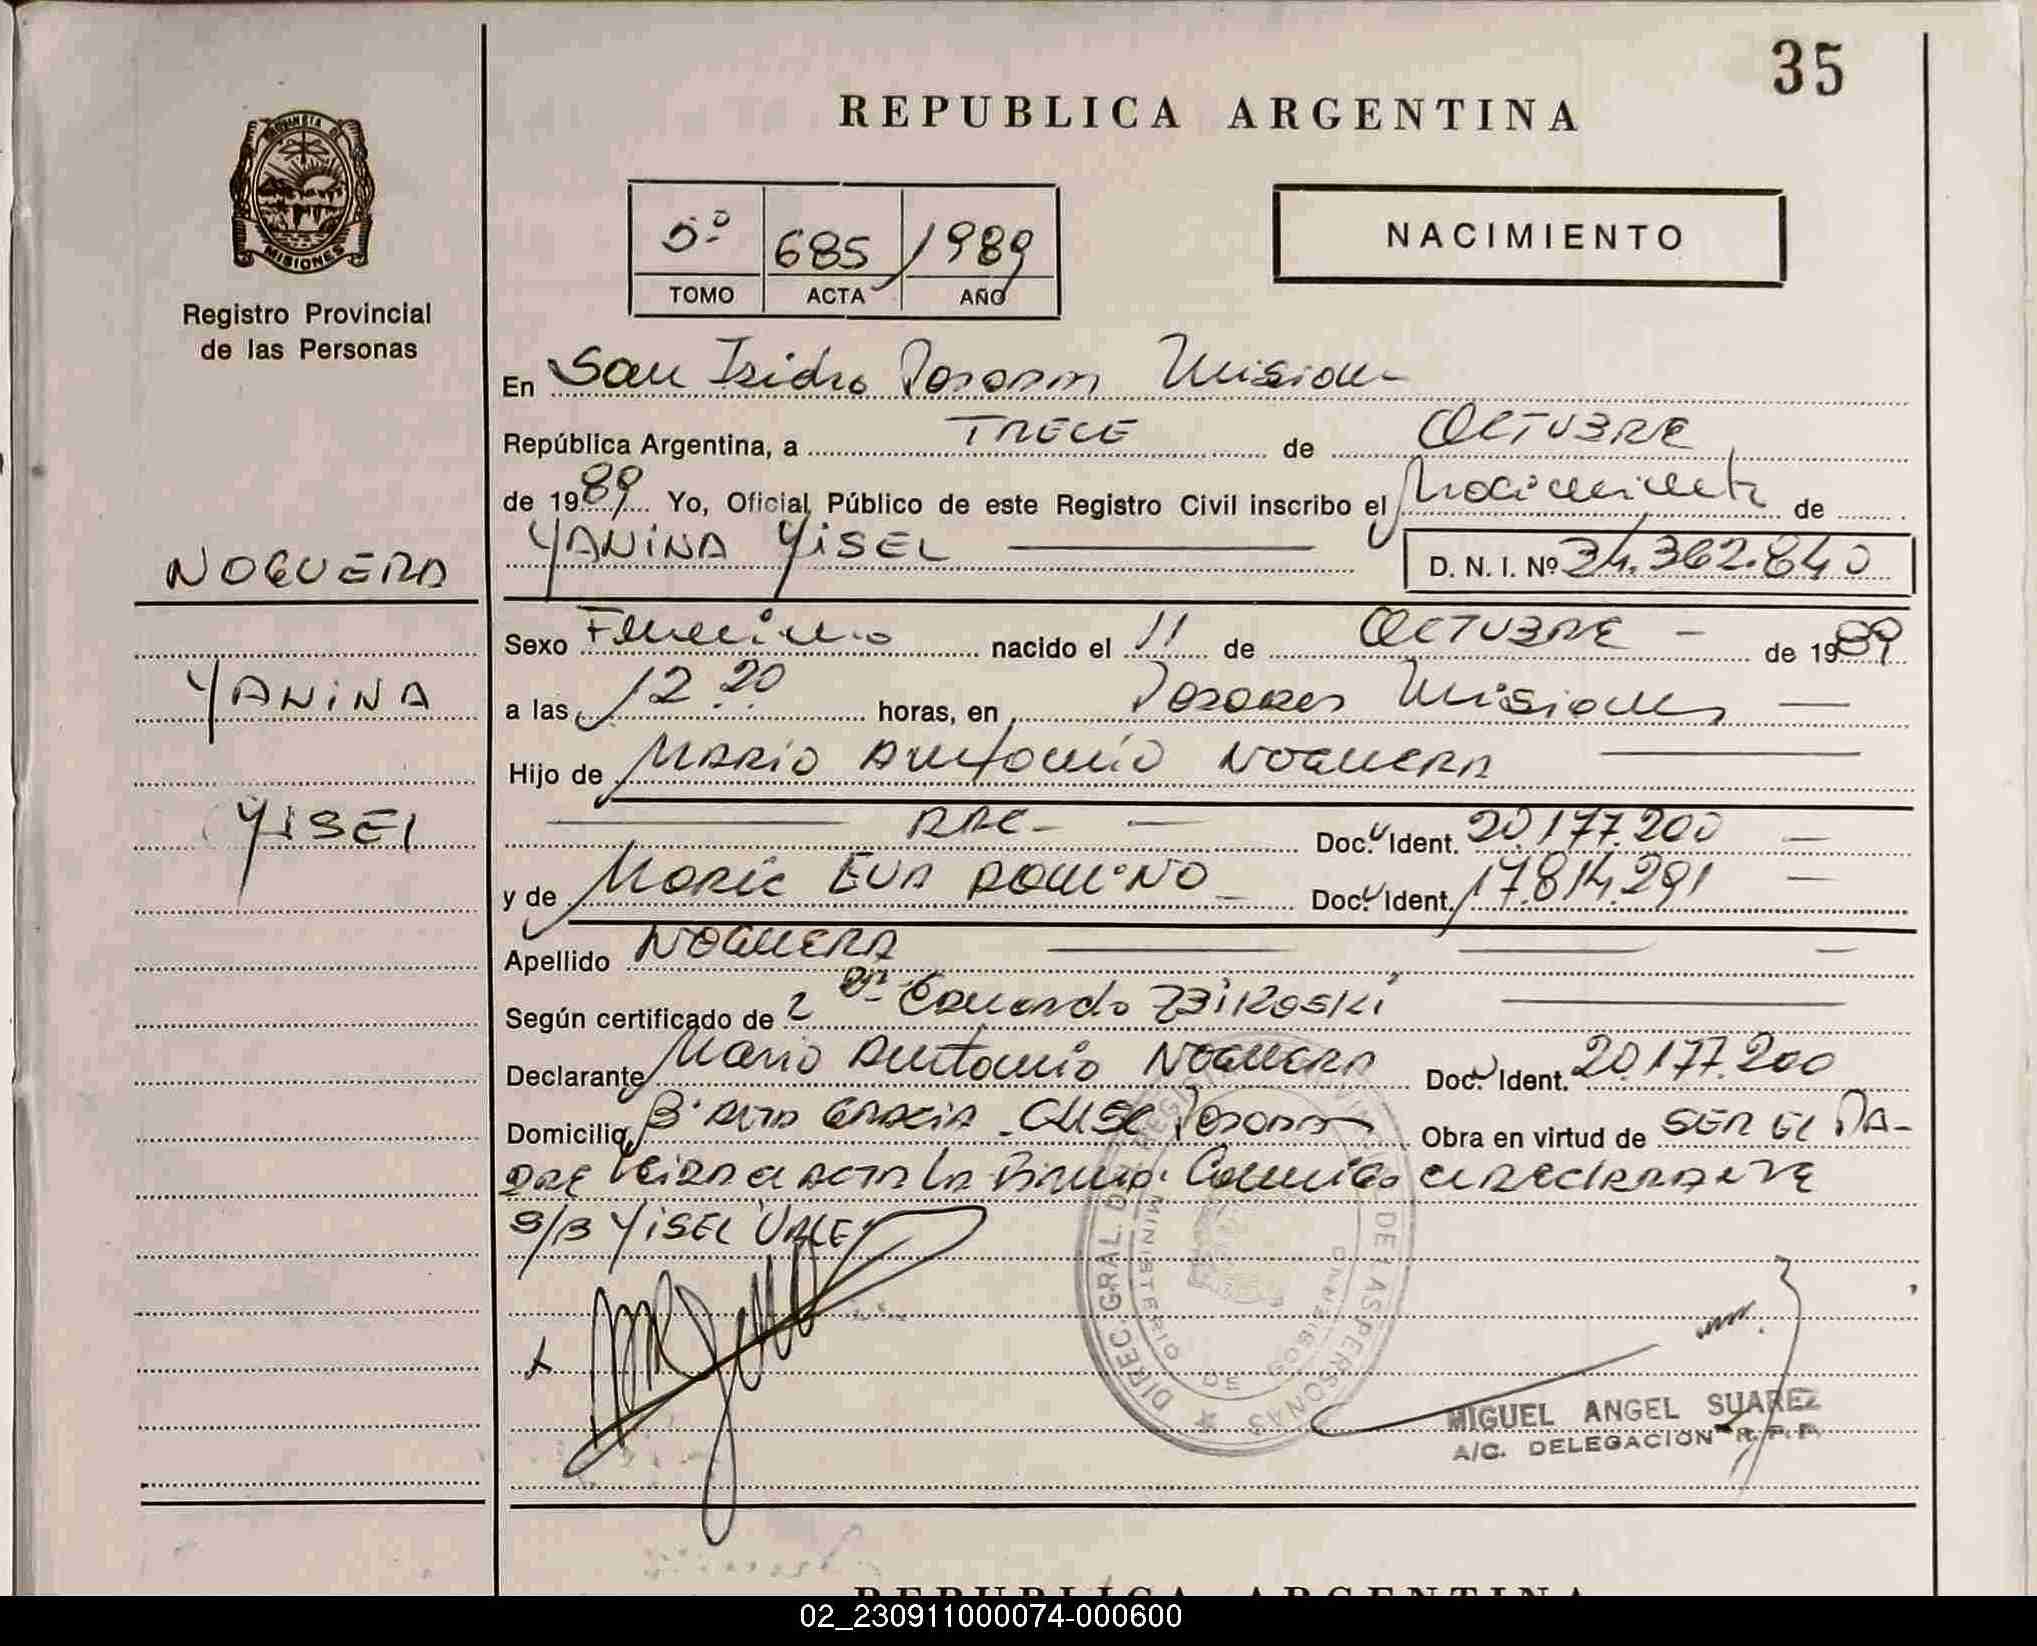 35
REPUBLICA ARGENTINA
PROVINCIA DE
MISIONES
Registro Provincial
de las Personas
5º 685 1989
TOMO ACTA AÑO
NACIMIENTO
En San Isidro Posadas Misiones
República Argentina, a TRECE de OCTUBRE
de 1989 Yo, Oficial Público de este Registro Civil inscribo el Nacimiento de
YANINA YISEL D. N. I. Nº 34.362.840
NOGUERA
YANINA
YISEL
Sexo Femenino nacido el 11 de OCTUBRE - de 1989
a las 12 20 horas, en Posadas Misiones
Hijo de MARIO ANTONIO NOGUERA
ARG- Doc. Ident. 20.177.200
y de EVA Doc. Ident. 17.814.291
Apellido NOGUERA
Según certificado de
Declarante Mario Antonio NOGUERA Doc. Ident. 20.177.200
Domicilio Bº ALTA GRACIA Posadas Obra en virtud de SER EL PA-
DRE Leida el acta la firma Conmigo el declarante
S/B YISEL VALE
DIREC. GRAL. DE LAS PERSONAS
MINISTERIO DE GOBIERNO
MIGUEL ANGEL SUAREZ
A/C. DELEGACION R.P.P.
REPUBLICA ARGENTINA
02_230911000074-000600